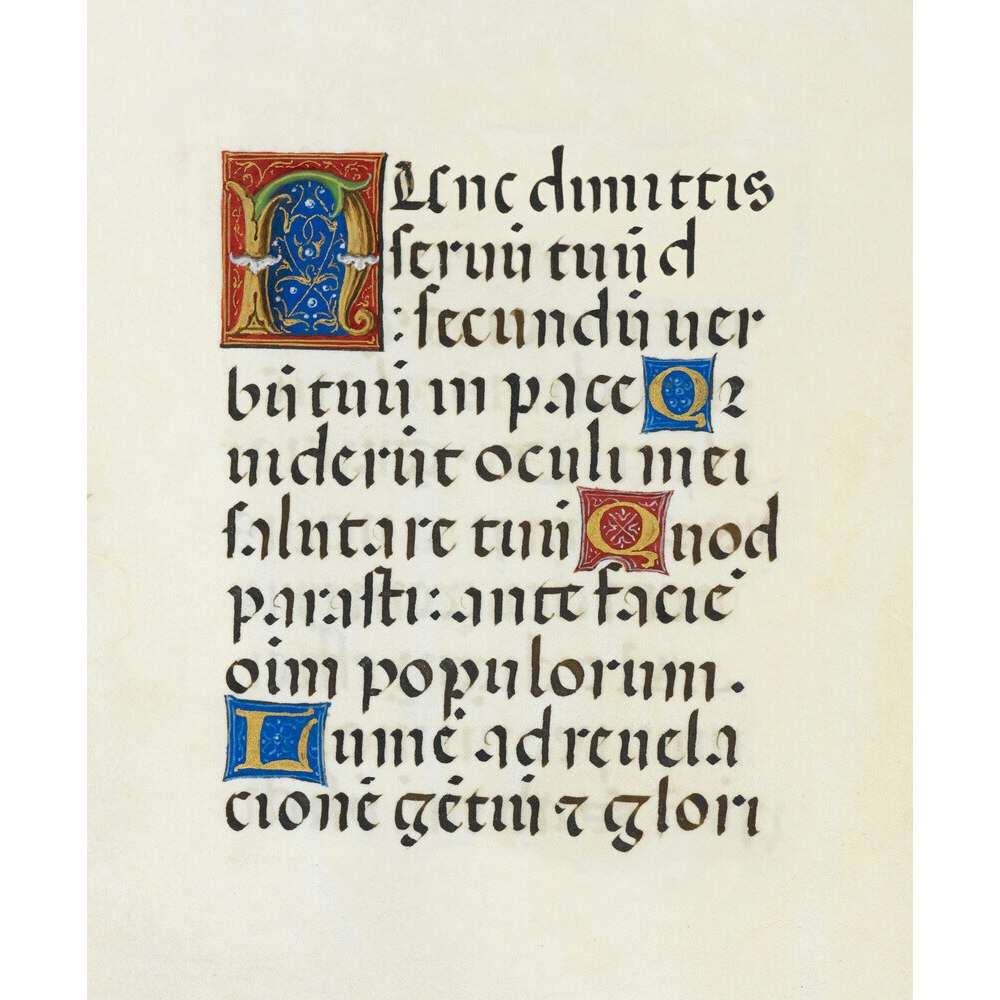 NUnc dimittis
ſeruū tuū d
: ſecundū uer
bū tuū in pace Qꝛ
uiderūt oculi mei
ſalutare tuū Quod
paraſti: ante faciē
oim populorum.
Lumē ad reuela
cionē gētiū ⁊ glori